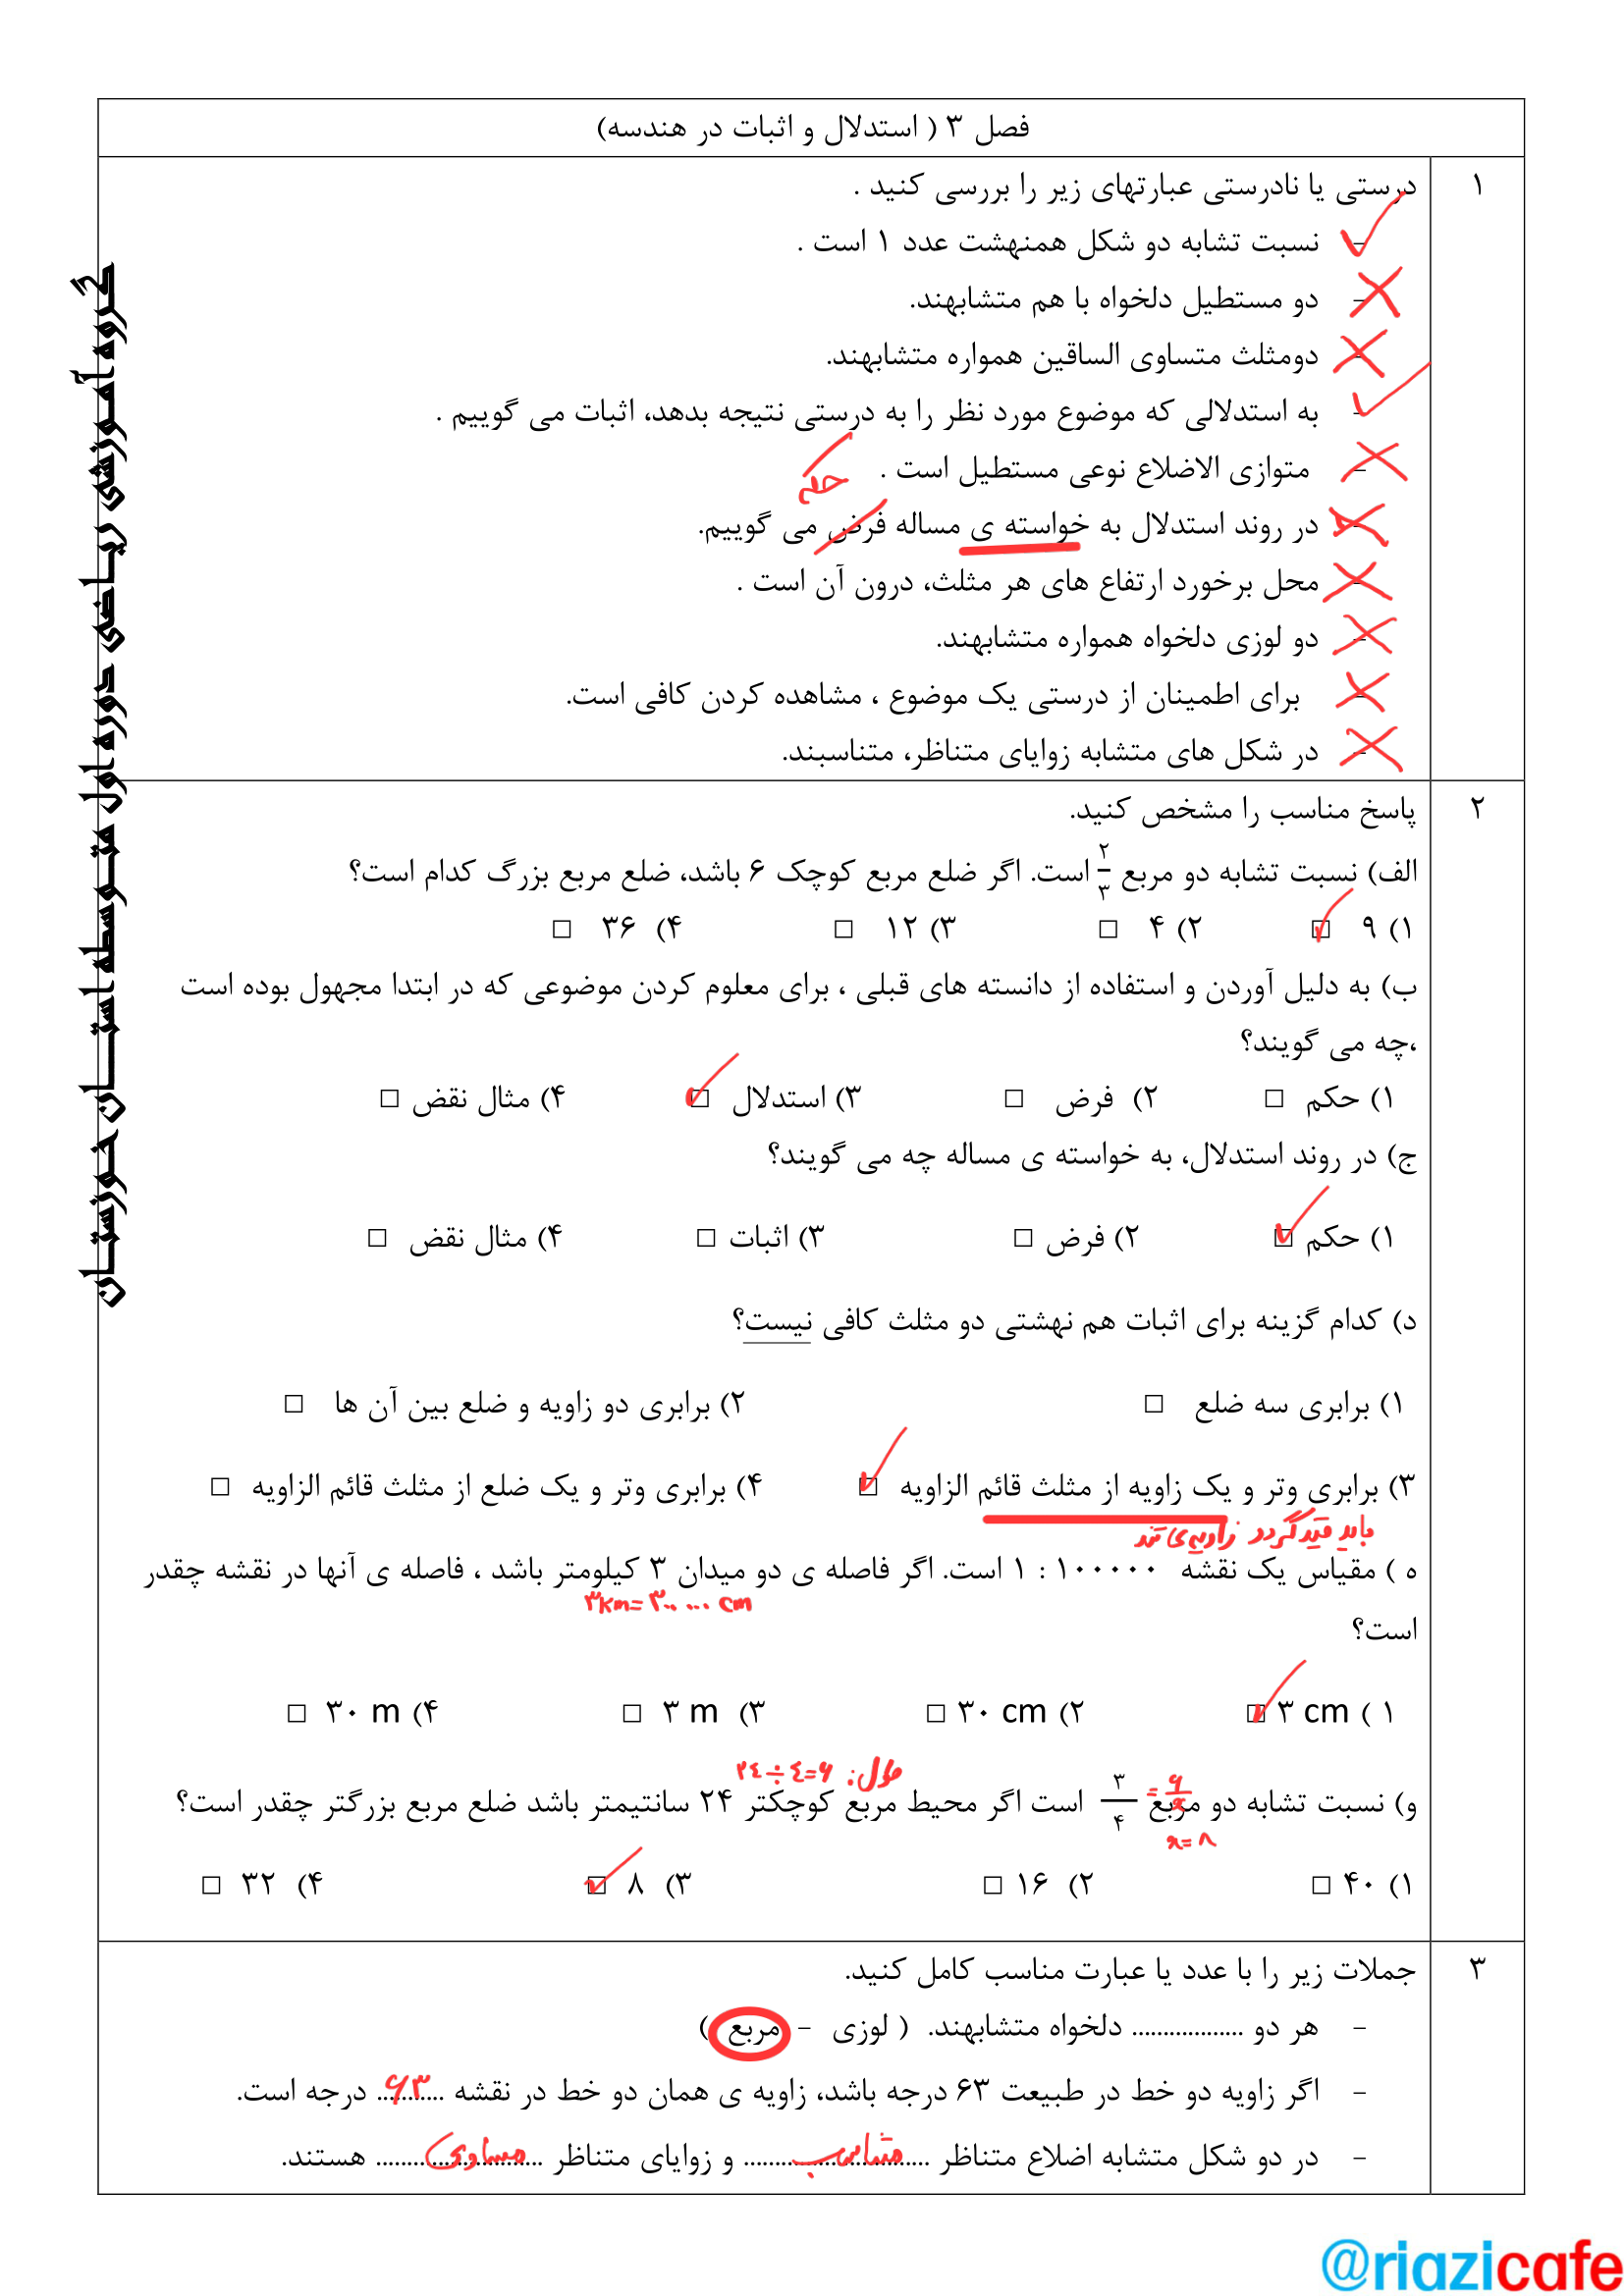 فصل ۳ ( استدلال و اثبات در هندسه)
۱
درستی یا نادرستی عبارتهای زیر را بررسی کنید .
- نسبت تشابه دو شکل همنهشت عدد ۱ است .
- دو مستطیل دلخواه با هم متشابهند.
- دومثلث متساوی الساقین همواره متشابهند.
- به استدلالی که موضوع مورد نظر را به درستی نتیجه بدهد، اثبات می گوییم .
- متوازی الاضلاع نوعی مستطیل است .
حکم
- در روند استدلال به خواسته ی مساله فرض می گوییم.
- محل برخورد ارتفاع های هر مثلث، درون آن است .
- دو لوزی دلخواه همواره متشابهند.
- برای اطمینان از درستی یک موضوع ، مشاهده کردن کافی است.
- در شکل های متشابه زوایای متناظر، متناسبند.
۲
پاسخ مناسب را مشخص کنید.
الف) نسبت تشابه دو مربع ۲/۳ است. اگر ضلع مربع کوچک ۶ باشد، ضلع مربع بزرگ کدام است؟
۱) ۹ □ ۲) ۴ □ ۳) ۱۲ □ ۴) ۳۶ □
ب) به دلیل آوردن و استفاده از دانسته های قبلی ، برای معلوم کردن موضوعی که در ابتدا مجهول بوده است
،چه می گویند؟
۱) حکم □ ۲) فرض □ ۳) استدلال □ ۴) مثال نقض □
ج) در روند استدلال، به خواسته ی مساله چه می گویند؟
۱) حکم □ ۲) فرض □ ۳) اثبات □ ۴) مثال نقض □
د) کدام گزینه برای اثبات هم نهشتی دو مثلث کافی نیست؟
۱) برابری سه ضلع □ ۲) برابری دو زاویه و ضلع بین آن ها □
۳) برابری وتر و یک زاویه از مثلث قائم الزاویه □ ۴) برابری وتر و یک ضلع از مثلث قائم الزاویه □
باید قید گردد زاویه‌ی تند
ه ) مقیاس یک نقشه ۱۰۰۰۰۰ : ۱ است. اگر فاصله ی دو میدان ۳ کیلومتر باشد ، فاصله ی آنها در نقشه چقدر
۳km=۳۰۰۰۰۰ cm
است؟
۱ ) ۳ cm □ ۲) ۳۰ cm □ ۳) ۳ m □ ۴) ۳۰ m □
طول: ۲۴÷۴=۶
و) نسبت تشابه دو مربع ۳/۴ = ۶/x است اگر محیط مربع کوچکتر ۲۴ سانتیمتر باشد ضلع مربع بزرگتر چقدر است؟
x=۸
۱) ۴۰ □ ۲) ۱۶ □ ۳) ۸ □ ۴) ۳۲ □
۳
جملات زیر را با عدد یا عبارت مناسب کامل کنید.
- هر دو .................. دلخواه متشابهند. ( لوزی - مربع )
- اگر زاویه دو خط در طبیعت ۶۳ درجه باشد، زاویه ی همان دو خط در نقشه ۶۳ درجه است.
- در دو شکل متشابه اضلاع متناظر متناسب و زوایای متناظر مساوی هستند.
گروه آموزشی ریاضی دوره اول متوسطه استان خوزستان
@riazicafe